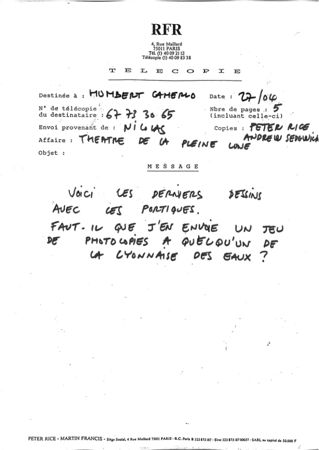 RFR
4, Rue Maillard
75011 PARIS
Tél. (1) 40 09 21 12
Télécopie (1) 40 09 83 38
TELECOPIE
Destinée à : HUMBERT CAMERLO
Date : 27/04
N° de télécopie
du destinataire : 67 73 30 65
Nbre de pages : 5
(incluant celle-ci)
Envoi provenant de : NICOLAS
Copies : PETER RICE
ANDREW SEDGWICK
Affaire : THEATRE DE LA PLEINE LUNE
Objet :
MESSAGE
VOICI LES DERNIERS DESSINS
AVEC LES PORTIQUES.
FAUT-IL QUE J'EN ENVOIE UN JEU
DE PHOTOCOPIES A QUELQU'UN DE
LA LYONNAISE DES EAUX ?
PETER RICE - MARTIN FRANCIS - Siège Social, 4 Rue Maillard 75011 PARIS - R.C. Paris B 323 873 87